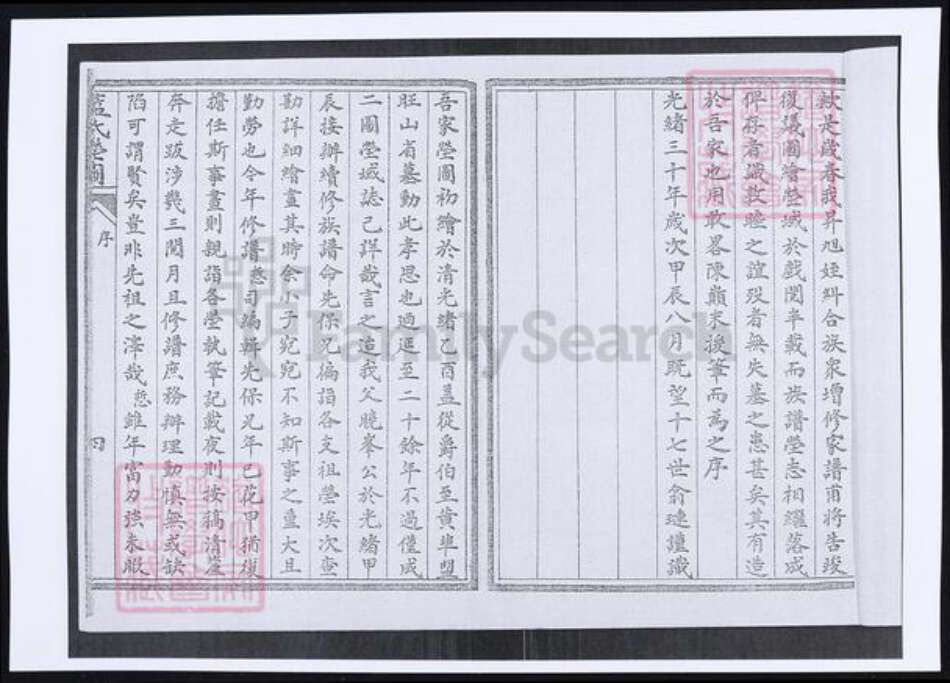 歟是歲春我昇旭姪糾合族衆增修家譜甫將告竣
復議圖繪塋域於戲閱半載而族譜塋志相繼落成
俾存者識敦睦之誼歿者無失墓之患甚矣其有造
於吾家也用敢畧陳巔末援筆而為之序
光緒三十年歲次甲辰八月既望十七世俞璉謹識
吾家塋圖初繪於清光緒乙酉蓋從爵伯至黄埠盟
旺山省墓動此孝思也迺延至二十餘年不過僅成
二圖塋域誌已詳哉言之造我父曉峯公於光緒甲
辰接辦續修族譜命先保兄徧詣各支祖塋埃次查
勘詳細繪畫其時余小子兒兒不知斯事之重大且
勤勞也今年修譜慤司編輯先保兄年已花甲猶復
擔任斯事晝則親詣各塋執筆記載夜則按稿清釐
奔走跋涉幾三閱月且修譜庶務辦理勤慎無或缺
陷可謂賢矣豈非先祖之澤哉慤雖年富力強未暇
氏塋圖
序
四
FamilySearch